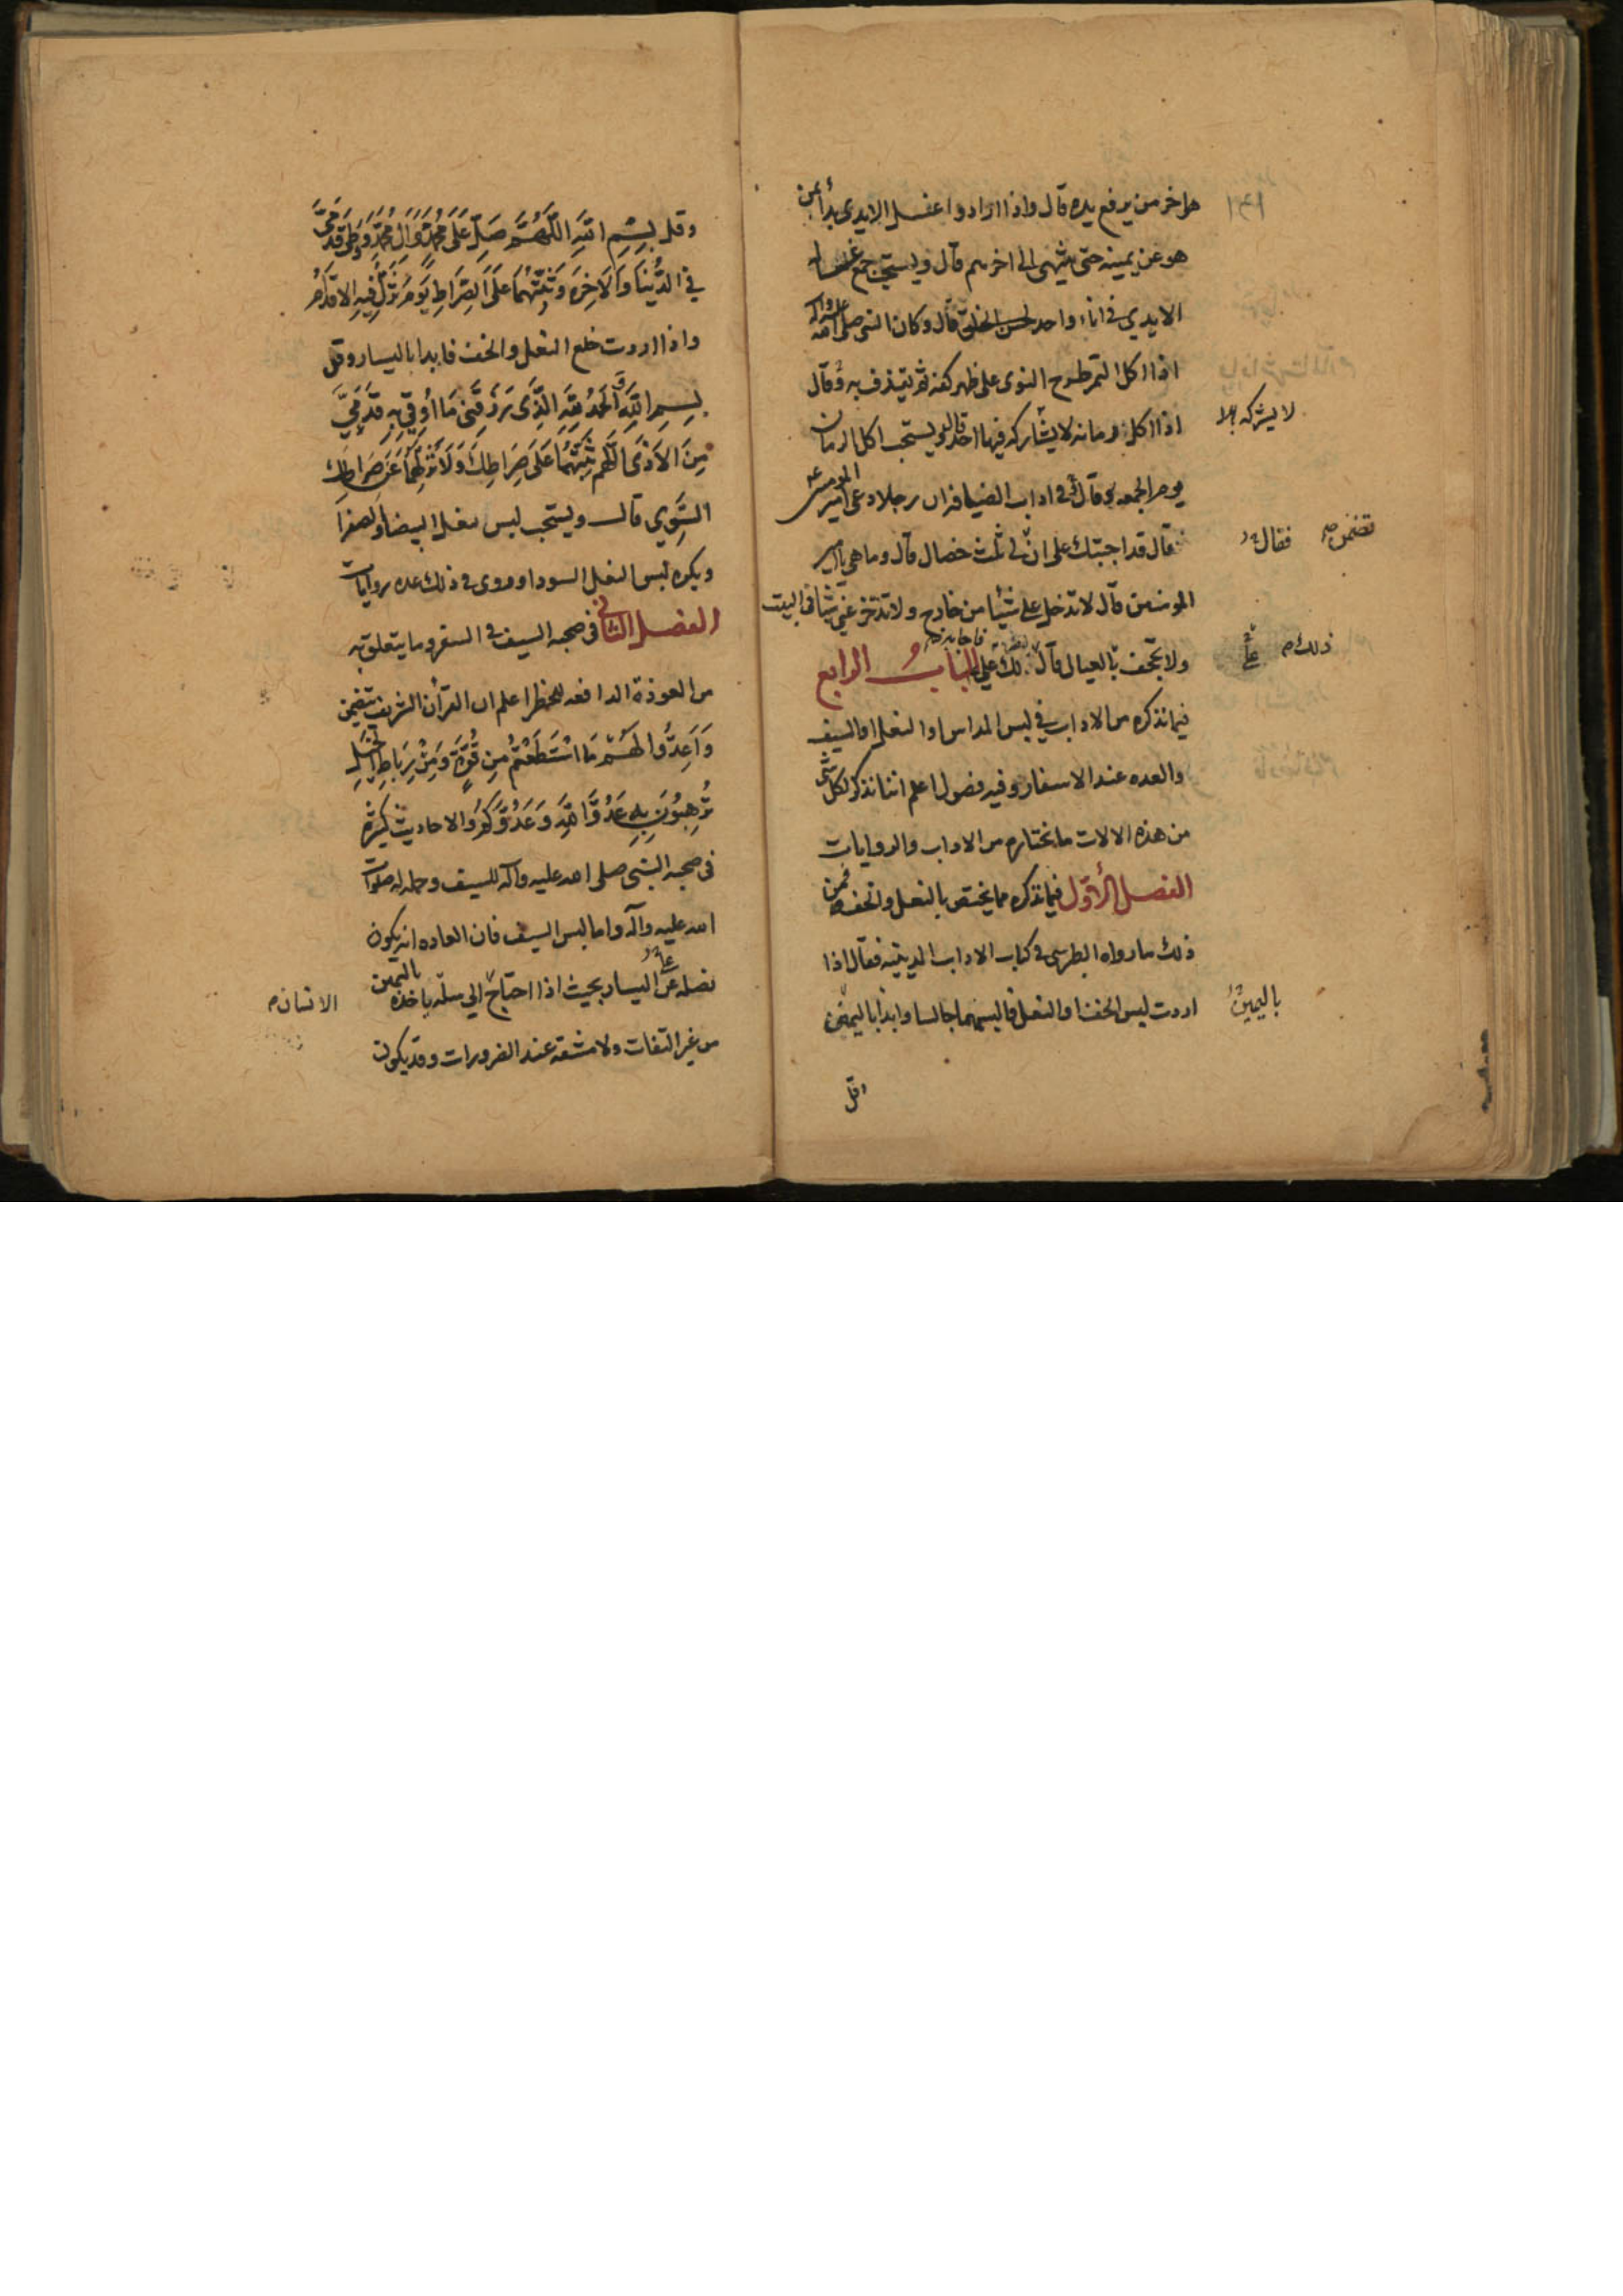 هو اخر من يرفع يده قال واذا ارادوا غسل الايدى بدأ بمن
هو عن يمينه حتى ينتهى الى اخرهم قال ويستحب جمع غسل
الايدي فى اناء واحد لحسن الخلق قال وكان النبى صلى الله عليه واله
اذا اكل التمر طرح النوى على ظهر كفه ثم يقذف به وقال
اذا اكل رمانه لا يشاركه فيها احد قال ويستحب اكل الرمان
لا يشركه
يوم الجمعه وقال فى اداب الضيافه ان رجلا دعى امير المومنين
فقال قد اجبتك على ان لى ثلث خصال قال وما هى يا امير
تضمن فقال
المومنين قال لا تدخل على شيئا من خارج ولا تدخر عنى شيئا فى البيت
ولا تجحف بالعيال قال لك على فاجابه الباب الرابع
ذلك
فيما نذكره من الاداب في لبس المداس او النعل او السيف
والعده عند الاسفار وفيه فصول اعلم اننا نذكر لكل شئ
من هذه الالات ما نختاره من الاداب والروايات
الفصل الأول فيما نذكره مما يختص بالنعل والخف فمن
ذلك ما رواه الطبرسى فى كتاب الاداب الدينيه فقال اذا
اردت لبس الخف او النعل فالبسهما جالسا وابدأ باليمنى
باليمين
وقل
وقل بِسْمِ اللهِ اللّهُمَّ صَلِّ عَلَى مُحَمَّدٍ وَالِ مُحَمَّدٍ وَوَطِّى قَدَمَىَّ
فِي الدُّنْيَا وَالاخِرَه وَثَبِّتْهُمَا عَلَى الصِّرَاطِ يَوْمَ تَزِلُّ فِيهِ الاقْدَامُ
واذا اردت خلع النعل والخف فابدا باليسار وقل
بِسمِ اللهِ وَالحَمْدُ لِلّهِ الَّذِى رَزَقَنِى مَا اُوقِى بِهِ قَدَمَيَّ
مِنَ الاَذَى اللّهُم ثَبِّتْهُمَا عَلَى صِرَاطِكَ وَلَا تُزِلَّهُمَا عَنْ صِرَاطِكَ
السَّوِي قال ويستحب لبس نعل البيضا والصفرا
ويكره لبس النعل السودا وروى فى ذلك عده روايات
الفصل الثانى فى صحبه السيف فى السفر وما يتعلق به
من العوذة الدافعه للخطر اعلم ان القرآن الشريف يتضمن
وَاَعِدُّوا لَهُمْ مَا اسْتَطَعْتُمْ مِن قُوَّةٍ وَمِنْ رِبَاطِ الْخَيْلِ
تُرْهِبُونَ بِهِ عَدُوَّ اللهِ وَعَدُوَّكُمْ والاحاديث كثيره
فى صحبه النبى صلى الله عليه وآله للسيف وحمله له صلوات
الله عليه وآله واما لبس السيف فان العاده انه يكون
نصله على اليسار بحيث اذا احتاج الى سله ياخذه باليمين
الانسان
من غير التفات ولا مشقه عند الضرورات وقد يكون